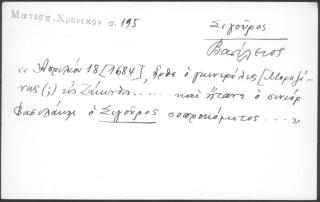 Ματεσ. Χρονικον σ. 195
Σιγοῦρος
Βασίλειος
« Ἀπριλίου 18 [1684], ἦρθε ὁ γενεράλες [Μοροζί-
νης (;) εἰς Ζάκυνθο ..... καὶ ἤτανε ὁ σινιὸρ
Βασιλάκης ὁ Σιγοῦρος σοπρακόμιτος .... »